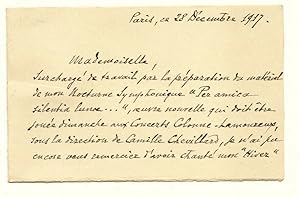 Paris, ce 28 Décembre 1917.
Mademoiselle,
Surchargé de travail par la préparation du matériel
de mon Nocturne Symphonique "Per amica
silentia lunae...", œuvre nouvelle qui doit être
jouée dimanche aux Concerts Colonne-Lamoureux,
sous la direction de Camille Chevillard, je n'ai pu
encore vous remercier d'avoir chanté mon "Hiver"